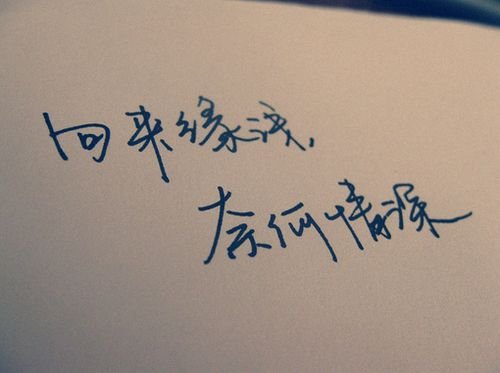 向来缘浅,
奈何情深